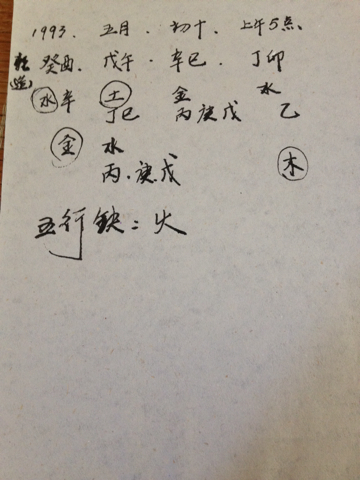 1993. 五月. 初十. 上午5点
乾造 癸酉. 戊午. 辛巳. 丁卯
水 辛 土 金 水
丁巳 丙庚戊 乙
金 水
丙.庚戊 木
五行缺:火